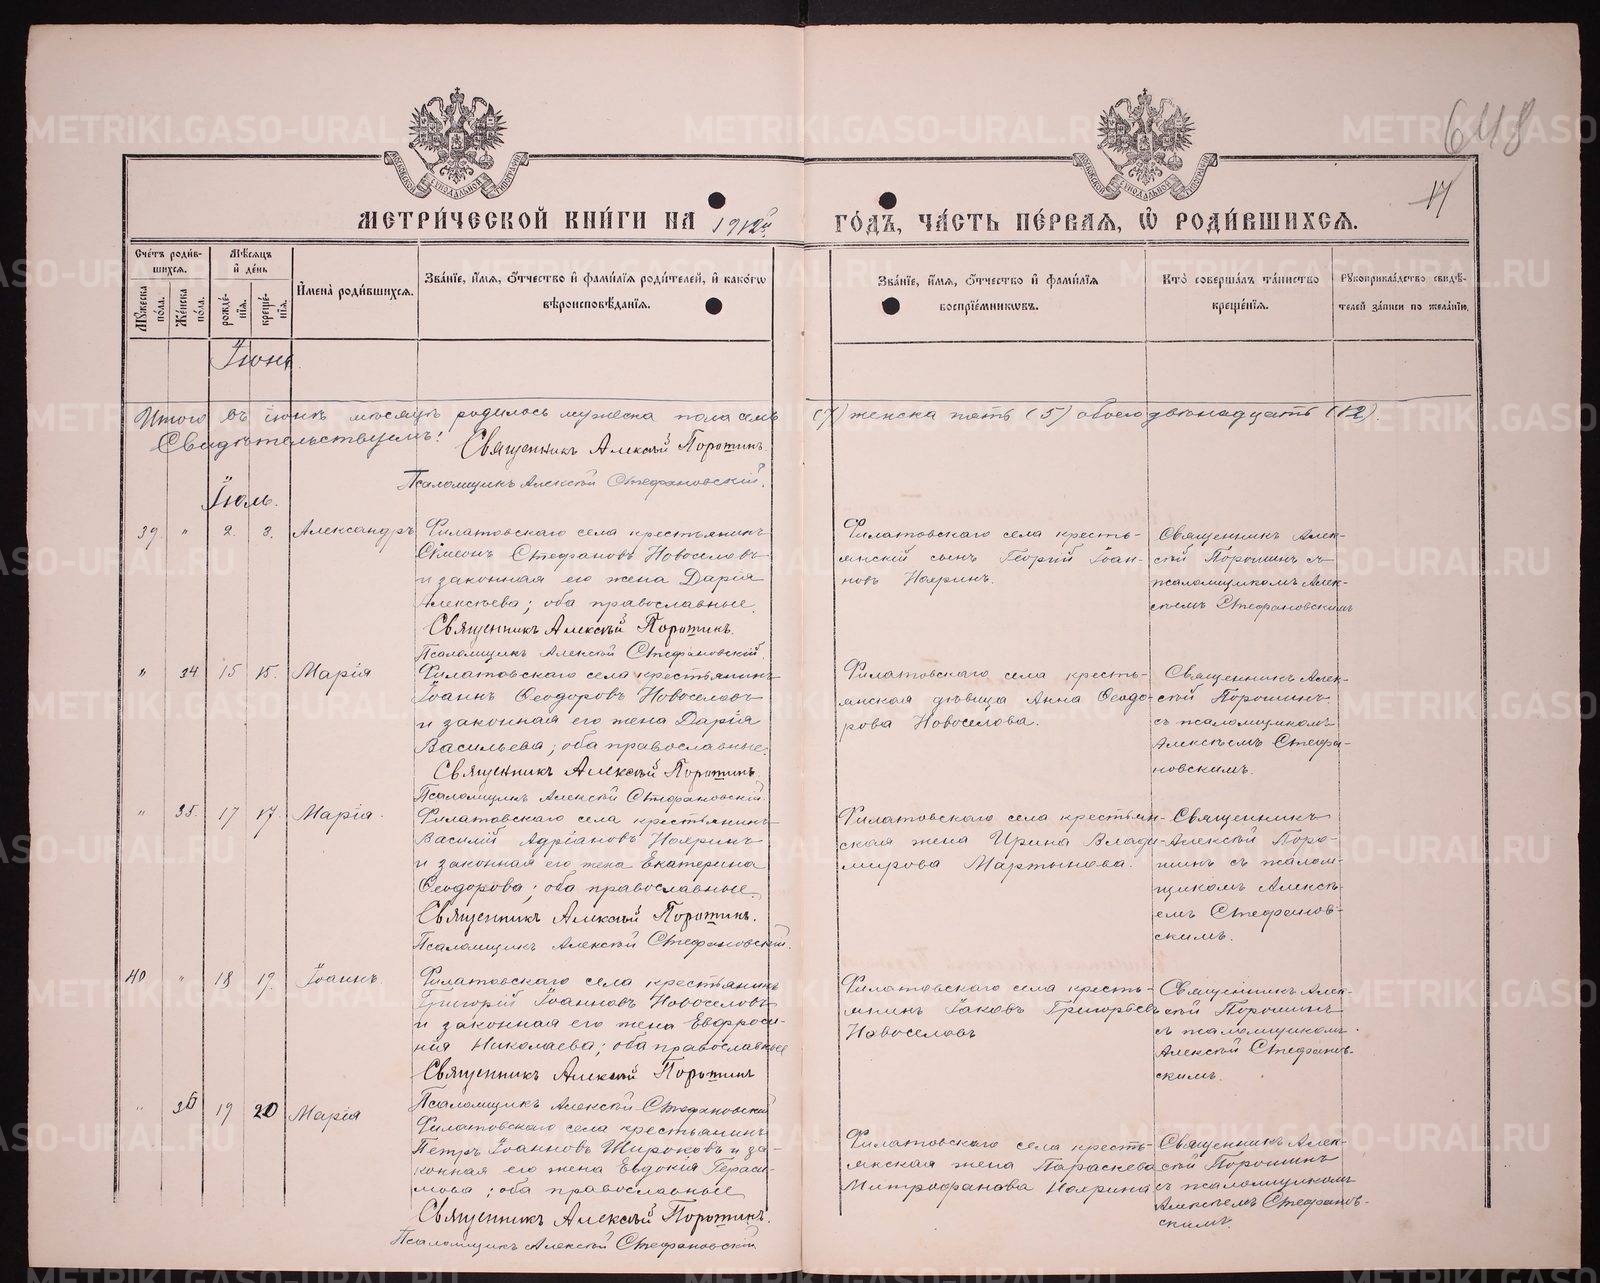 648
17
МОСКОВСКОЙ СѴНОДАЛЬНОЙ ТИПОГРАФІИ
МОСКОВСКОЙ СѴНОДАЛЬНОЙ ТИПОГРАФІИ
МЕТРИ́ЧЕСКОЙ КНИ́ГИ НА 1912й ГО́ДЪ, ЧА́СТЬ ПЕ́РВАЯ, Ѽ РОДИ́ВШИХСЯ.
Сче́тъ роди́в-
шихся.
Мѣ́сяцъ
и҆ де́нь
Мꙋ́жеска
по́ла.
Же́нска
по́ла.
рожде́-
нїя.
креще́-
нїя.
И҆мена̀ роди́вшихся.
Зва́нїе, и҆́мя, ѻ҆́тчество и҆ фами́лїя роди́телей, и҆ како́гѡ
вѣроисповѣ́данїя.
Зва́нїе, и҆́мя, ѻ҆́тчество и҆ фами́лїя
воспрїе́мникѡвъ.
Кто̀ соверша́лъ та́инство
креще́нїя.
Рꙋкоприкла́дство свидѣ́-
телей за́писи по жела́нїю.
Іюнь.
Итого въ іюнѣ мѣсяцѣ родилось мужеска пола семь (7) женска пять (5) обоего двѣнадцать (12).
Свидѣтельствуемъ:
Священникъ Алексѣй Порошинъ.
Псаломщикъ Алексѣй Стефановскій.
Іюль.
39 " 2. 3. Александръ
Филатовскаго села крестьянинъ
Симеонъ Стефановъ Новоселовъ
и законная его жена Дарія
Алексѣева; оба православные.
Священникъ Алексѣй Порошинъ.
Псаломщикъ Алексѣй Стефановскій.
Филатовскаго села кресть-
янскій сынъ Георгій Іоан-
новъ Нояринъ.
Священникъ Алек-
сѣй Порошинъ съ
псаломщикомъ Алек-
сѣемъ Стефановскимъ
" 34 15 15. Марія
Филатовскаго села крестьянинъ
Іоаннъ Ѳеодоровъ Новоселовъ
и законная его жена Дарія
Васильева; оба православные.
Священникъ Алексѣй Порошинъ.
Псаломщикъ Алексѣй Стефановскій.
Филатовскаго села кресть-
янская дѣвица Анна Ѳеодо-
рова Новоселова.
Священникъ Алек-
сѣй Порошинъ
съ псаломщикомъ
Алексѣемъ Стефа-
новскимъ.
" 35. 17 17. Марія.
Филатовскаго села крестьянинъ
Василій Адріановъ Нояринъ
и законная его жена Екатерина
Ѳеодорова; оба православные.
Священникъ Алексѣй Порошинъ.
Псаломщикъ Алексѣй Стефановскій.
Филатовскаго села крестьян-
ская жена Ирина Влади-
мирова Мартынова.
Священникъ
Алексѣй Поро-
шинъ съ псалом-
щикомъ Алексѣ-
емъ Стефанов-
скимъ.
40 " 18 19. Іоаннъ.
Филатовскаго села крестьянинъ
Григорій Іоанновъ Новоселовъ
и законная его жена Евфроси-
нія Николаева; оба православные
Священникъ Алексѣй Порошинъ
Псаломщикъ Алексѣй Стефановскій
Филатовскаго села кресть-
янинъ Іаковъ Григорьевъ
Новоселовъ
Священникъ Алек-
сѣй Порошинъ
съ псаломщикомъ
Алексѣй Стефанов-
скимъ.
" 36 19 20 Марія
Филатовскаго села крестьянинъ
Петръ Іоанновъ Широковъ и за-
конная его жена Евдокія Гераси-
мова; оба православные
Священникъ Алексѣй Порошинъ.
Псаломщикъ Алексѣй Стефановскій
Филатовскаго села кресть-
янская жена Параскева
Митрофанова Ноярина
Священникъ Алек-
сѣй Порошинъ
съ псаломщикомъ
Алексѣемъ Стефанов-
скимъ.
METRIKI.GASO-URAL.RU